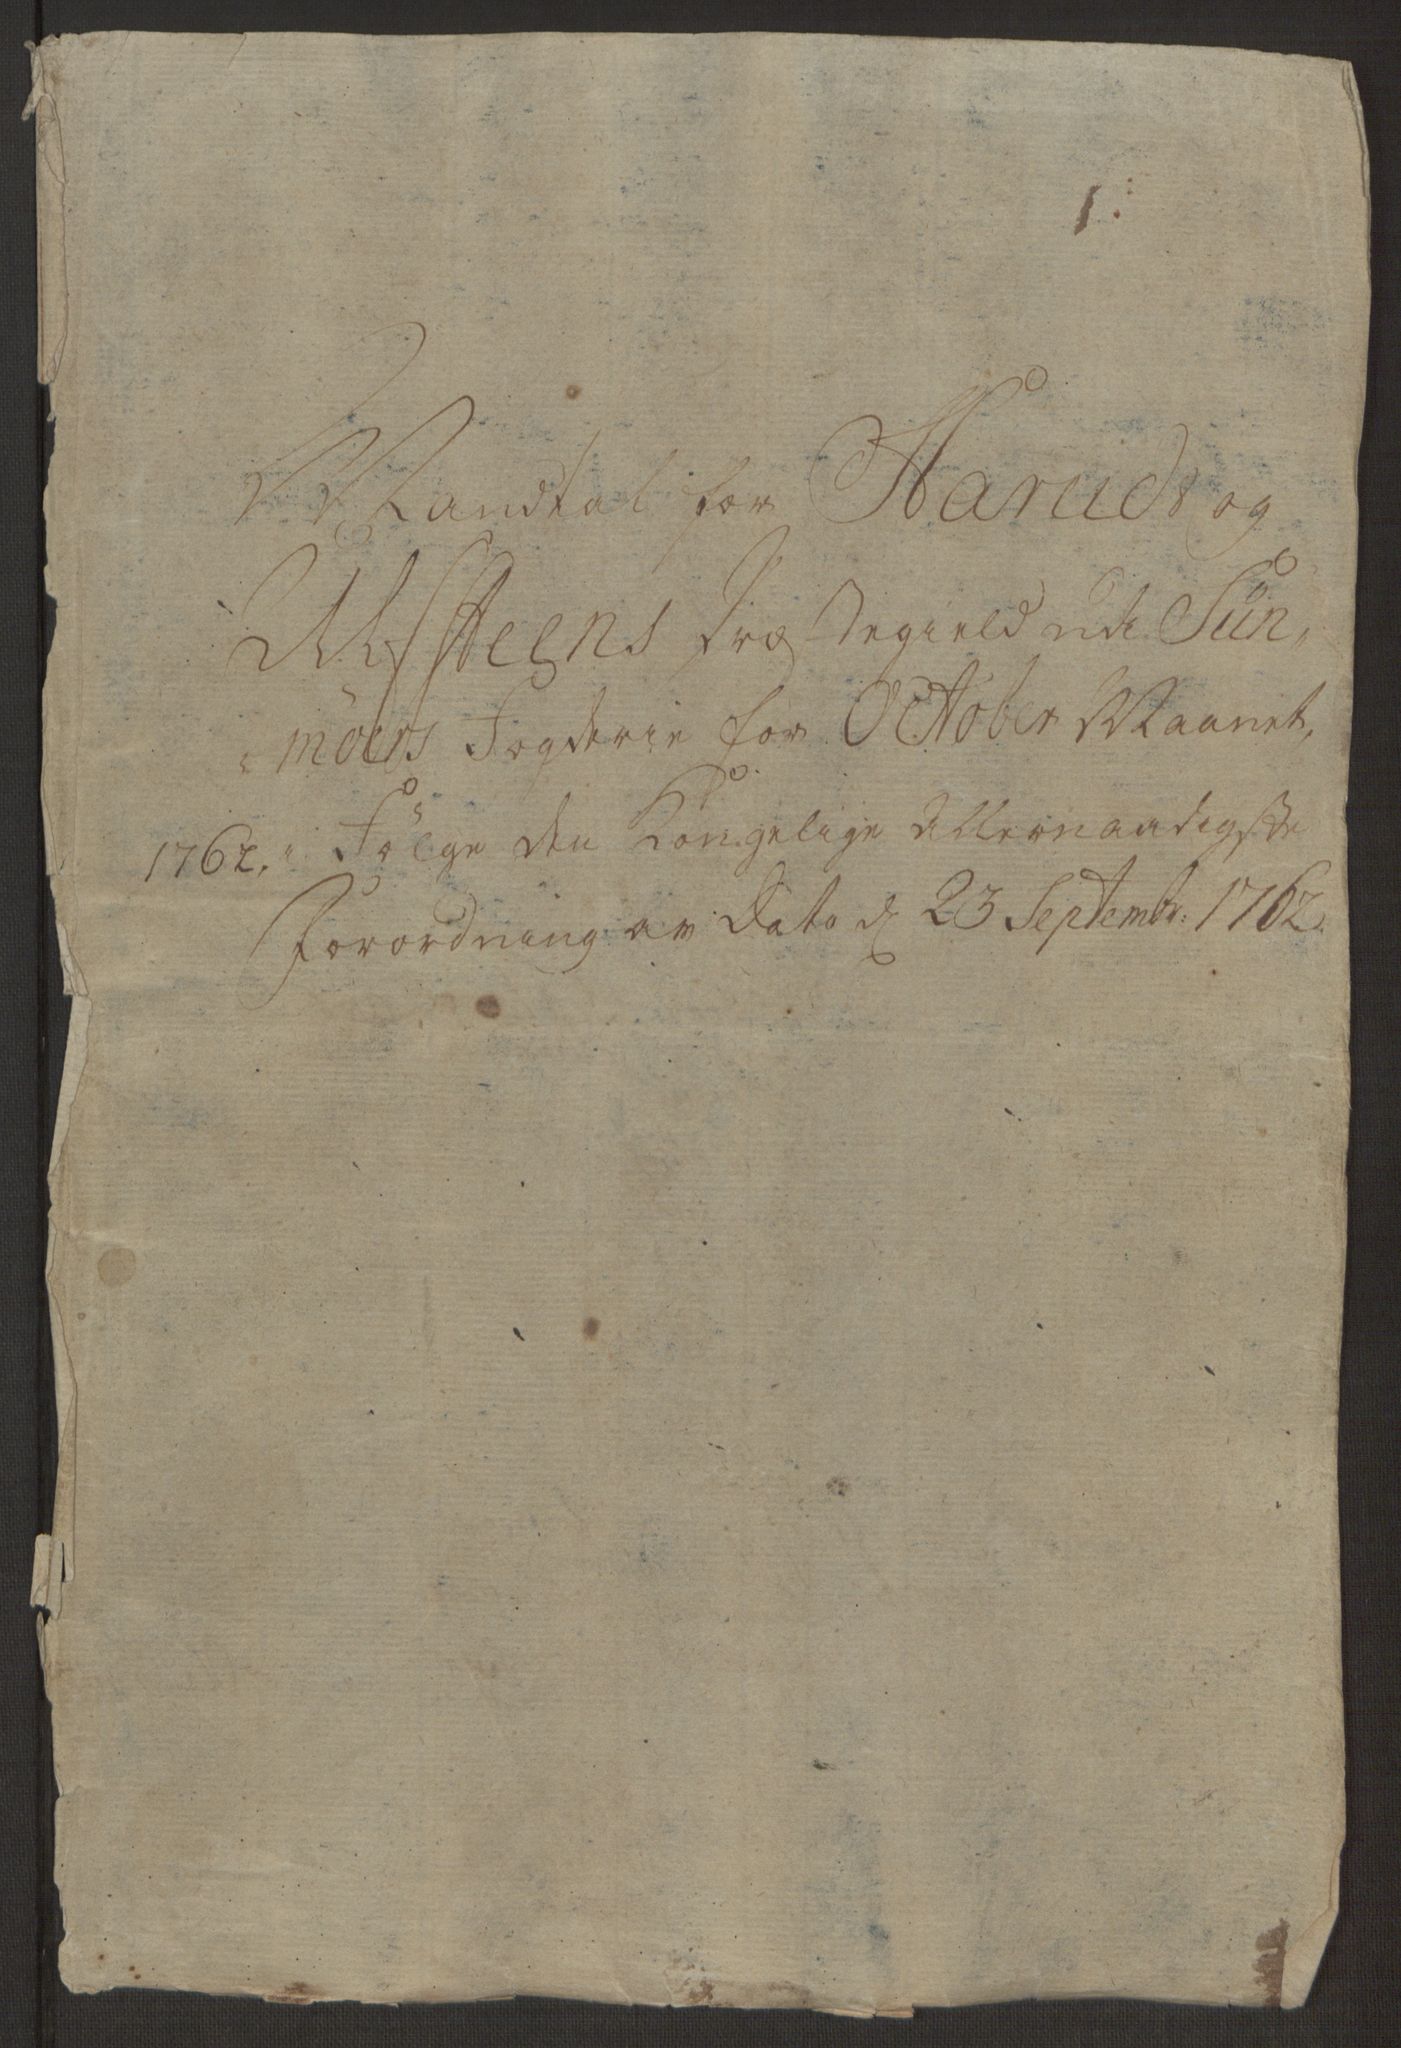 1.
Mandtal for Haruds og
Ulfsteens Præstegield udi Sün„
„möers Fogderie for October Maanet,
1762. i Fölge den Kongelige Allernaadigste
Forordning av Dato d 23 Septembr: 1762.